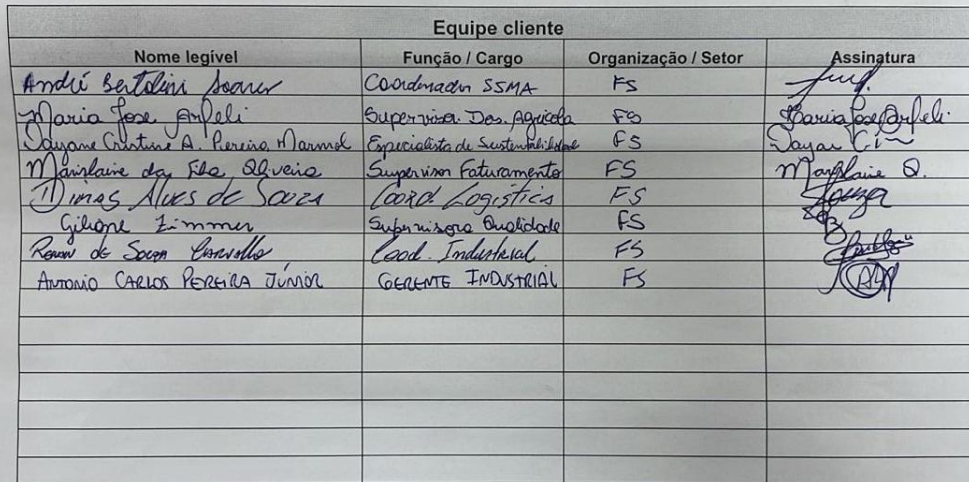 Equipe cliente
Nome legível Função / Cargo Organização / Setor Assinatura
André Bertolini Soares Coordenador SSMA FS
Maria Jose Supervisora Des. Agrícola FS Maria Jose
Dayane Cristine A. Pereira Marmol Especialista de Sustentabilidade FS
Oliveira Supervisor Faturamento FS
Dimas Alves de Souza Coord. Logística FS Souza
Giliane Zimmer Supervisora Qualidade FS
Renan de Souza Carvalho Cood. Industrial FS
ANTONIO CARLOS PEREIRA JÚNIOR GERENTE INDUSTRIAL FS